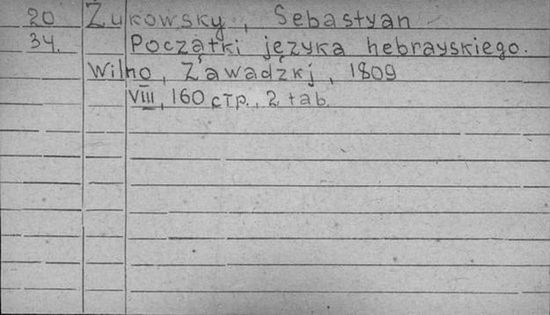 20 Żukowsky, Sebastyan
34. Początki języka hebrayskiego.
Wilno, Zawadzkj, 1809
VIII, 160 стр., 2 tab.